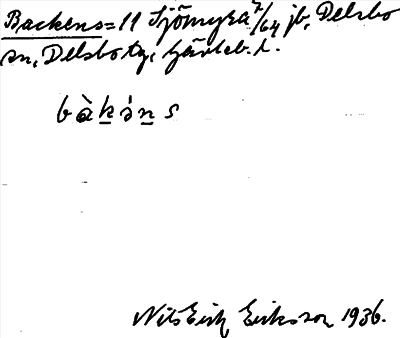 Backens = 11 Sjömyra 7/64 jb, Delsbo
sn, Delsbo tg, Gävleb. l.
bàkəns
Nils Erik Eriksson 1936.